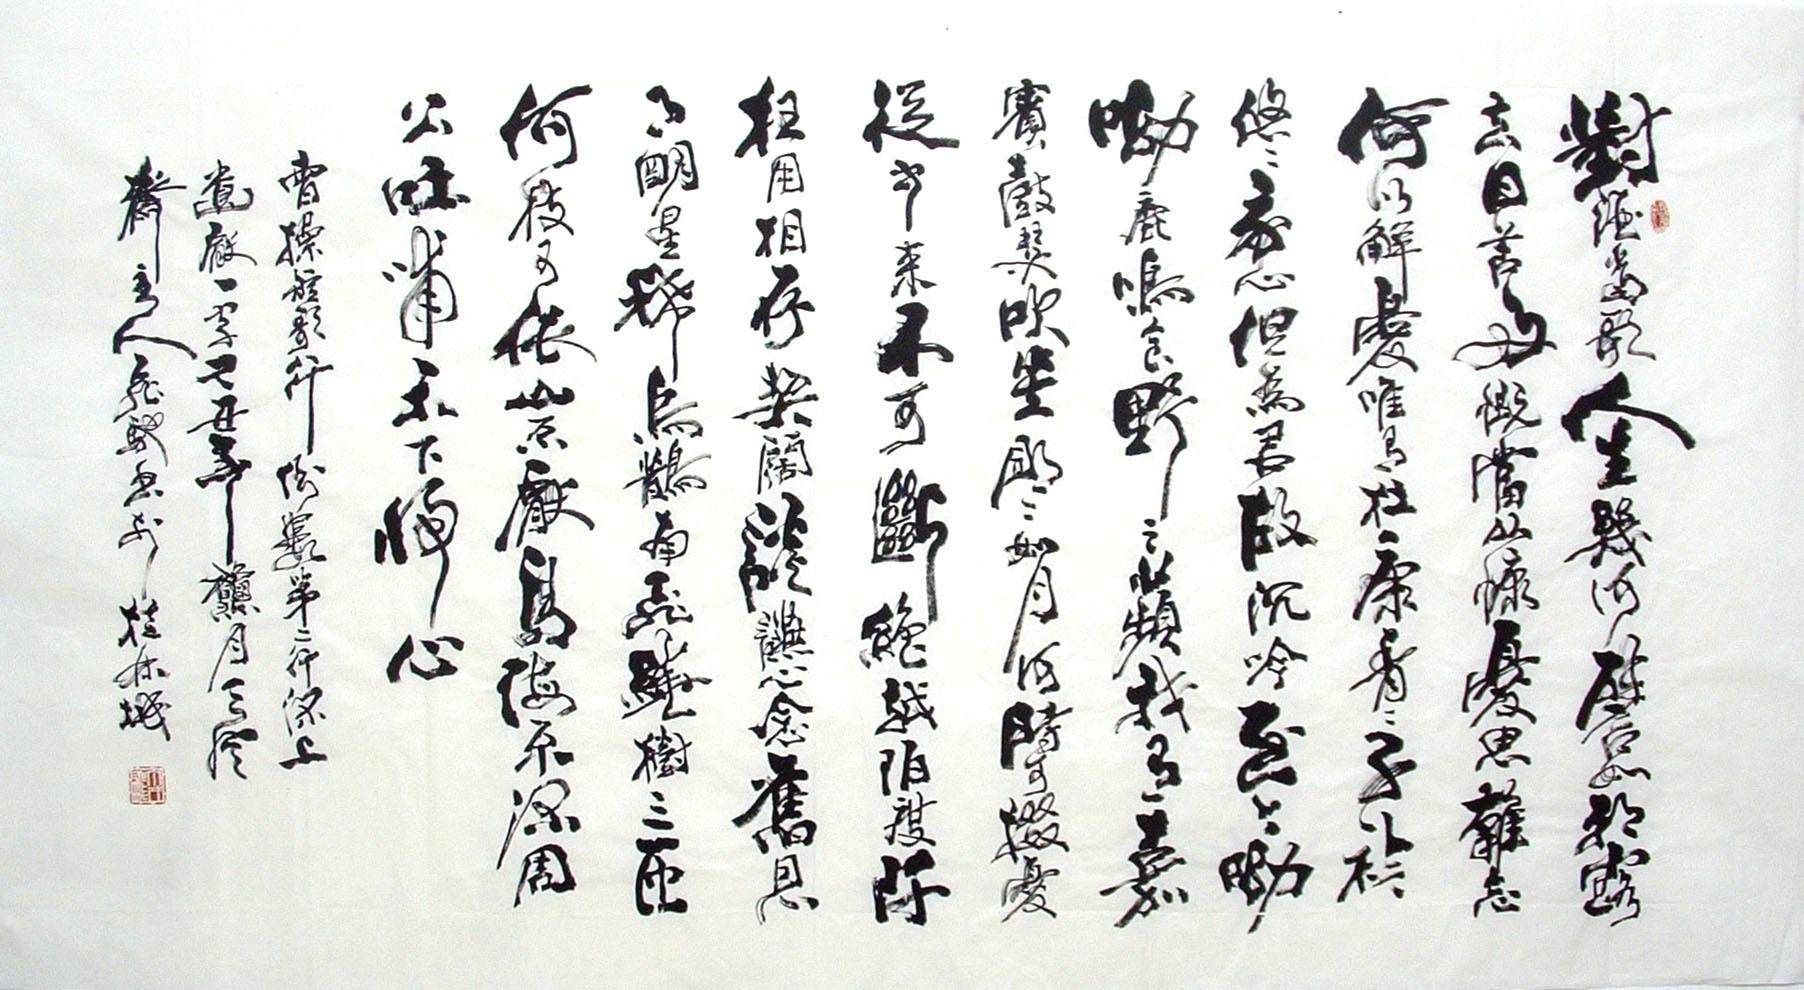 對酒當歌人生幾何譬如朝露
去日苦多慨當以慷憂思難忘
何以解憂唯有杜康青〻子衿
悠〻我心但為君故沉吟至今呦
呦鹿鳴食野之蘋我有嘉
賓鼓瑟吹笙明〻如月何時可掇憂
從中來不可斷絕越陌度阡
枉用相存契闊談讌心念舊恩
月明星稀烏鵲南飛繞樹三匝
何枝可依山不厭高海不深周
公吐哺天下歸心
曹操短歌行倒數第二行深上
遺厭一字丁丑年
齋主人桂林城